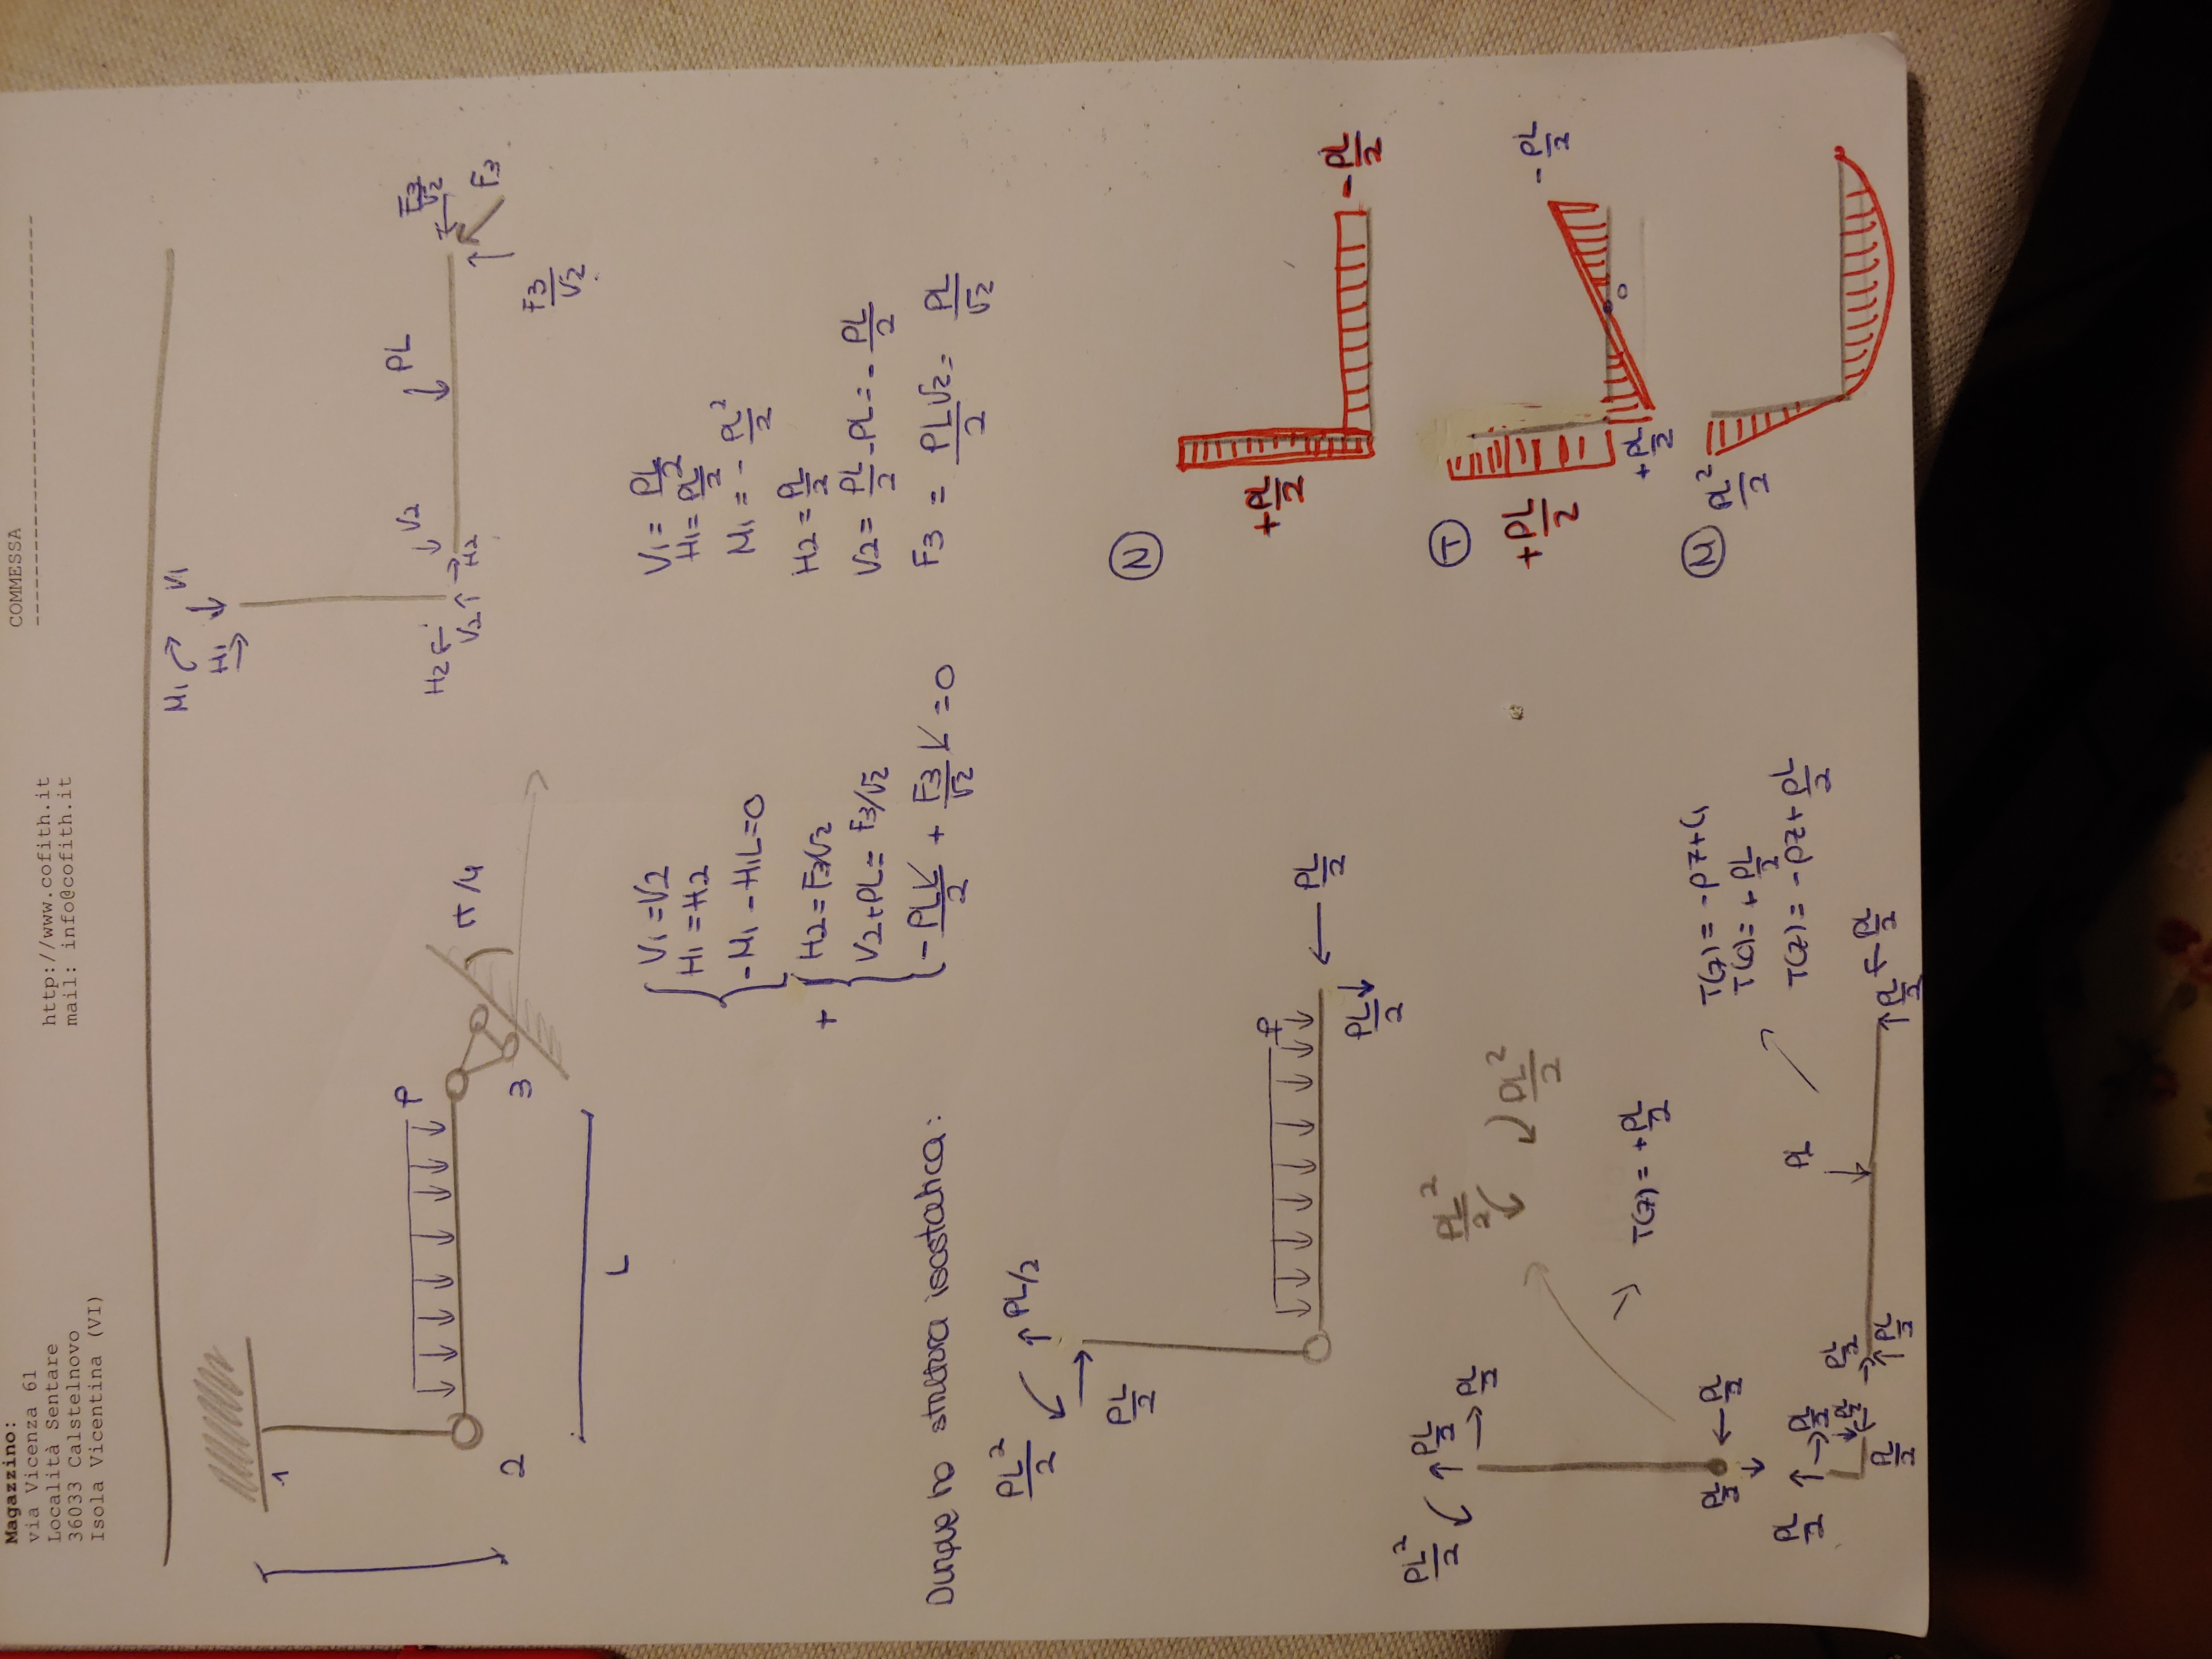 Magazzino:
via Vicenza 61
Località Sentare
36033 Calstelnovo
Isola Vicentina (VI)
http://www.cofith.it
mail: info@cofith.it
COMMESSA
M1 V1
H1
1
P
π/4
2
3
L
H2 V2 H2 V2
PL
F3/√2
F3
F3/√2
V1 = V2
H1 = H2
-M1 - H1L = 0
+
H2 = F3/√2
V2 + PL = F3/√2
-PLL/2 + F3/√2 L = 0
V1 = PL/2
H1 = PL/2
M1 = - PL²/2
H2 = PL/2
V2 = PL/2 - PL = - PL/2
F3 = PL/2 √2 = PL/√2
Dunque ho struttura isostatica:
PL²/2 PL/2
PL/2
P
PL/2
PL/2
N
+PL/2
-PL/2
PL²/2 PL/2
PL/2
PL²/2
PL²/2
T(z) = +PL/2
PL/2 PL/2
T
+PL/2
-PL/2
+PL/2
0
T(z) = -pz + C1
T(0) = + PL/2
T(z) = -pz + pL/2
PL/2 PL/2
PL/2
PL/2
PL/2
PL/2
PL
PL/2 PL/2
M
PL²/2